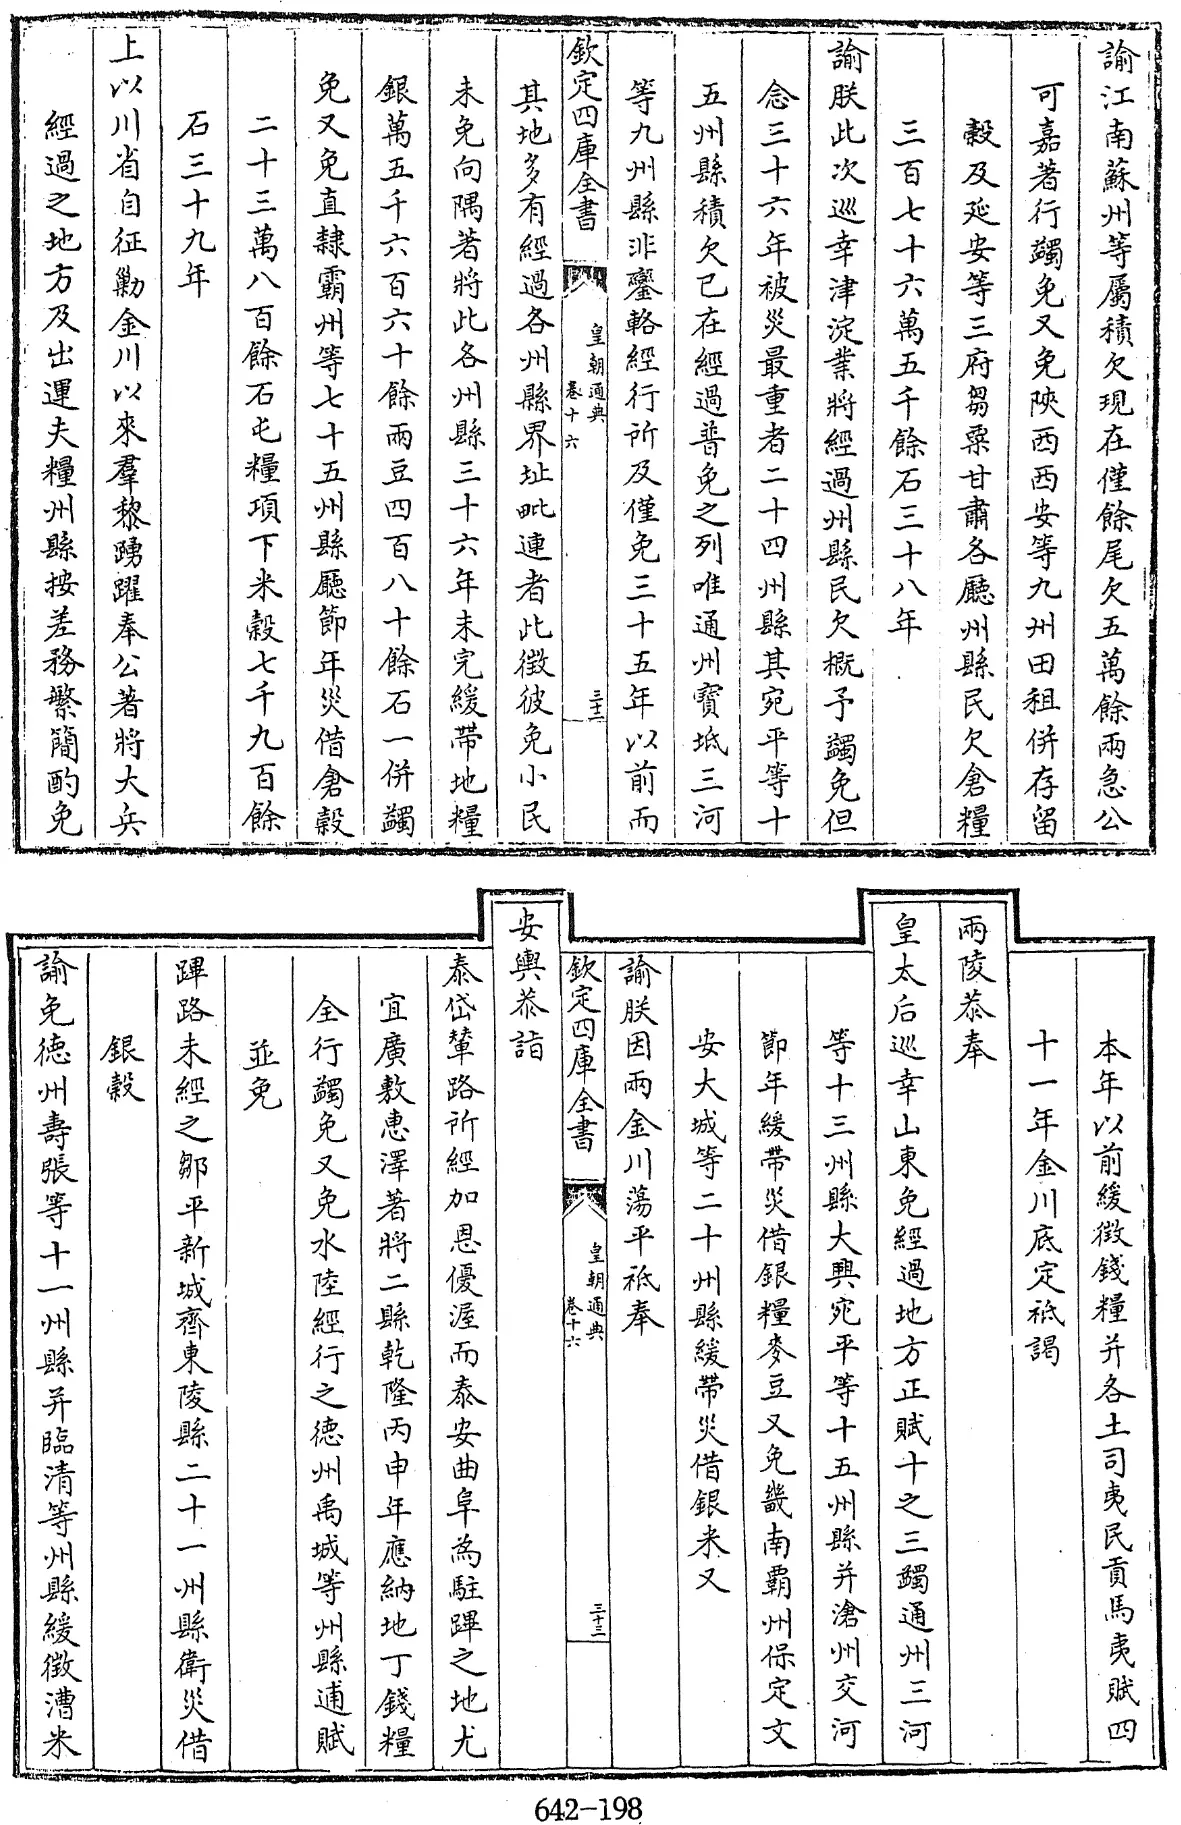 諭江南蘇州等屬積欠現在僅餘尾欠五萬餘兩急公
可嘉著行蠲免又免陝西西安等九州田租併存留
穀及延安等三府芻粟甘肅各廳州縣民欠倉糧
三百七十六萬五千餘石三十八年
諭朕此次巡幸津淀業將經過州縣民欠概予蠲免但
念三十六年被災最重者二十四州縣其宛平等十
五州縣積欠已在經過普免之列唯通州寶坻三河
等九州縣非鑾輅經行所及僅免三十五年以前而
欽定四庫全書
皇朝通典
卷十六
三十二
其地多有經過各州縣界址毗連者此徵彼免小民
未免向隅著將此各州縣三十六年未完緩帶地糧
銀萬五千六百六十餘兩豆四百八十餘石一併蠲
免又免直隸霸州等七十五州縣廳節年災借倉穀
二十三萬八百餘石屯糧項下米穀七千九百餘
石三十九年
上以川省自征勦金川以來羣黎踴躍奉公著將大兵
經過之地方及出運夫糧州縣按差務繁簡酌免
本年以前緩徵錢糧并各土司夷民貢馬夷賦四
十一年金川底定祗謁
兩陵恭奉
皇太后巡幸山東免經過地方正賦十之三蠲通州三河
等十三州縣大興宛平等十五州縣并滄州交河
節年緩帶災借銀糧麥豆又免畿南霸州保定文
安大城等二十州縣緩帶災借銀米又
諭朕因兩金川蕩平祗奉
欽定四庫全書
皇朝通典
卷十六
三十三
安輿恭詣
泰岱輦路所經加恩優渥而泰安曲阜為駐蹕之地尤
宜廣敷惠澤著將二縣乾隆丙申年應納地丁錢糧
全行蠲免又免水陸經行之德州禹城等州縣逋賦
並免
蹕路未經之鄒平新城齊東陵縣二十一州縣衛災借
銀穀
諭免德州壽張等十一州縣并臨清等州縣緩徵漕米
642-198